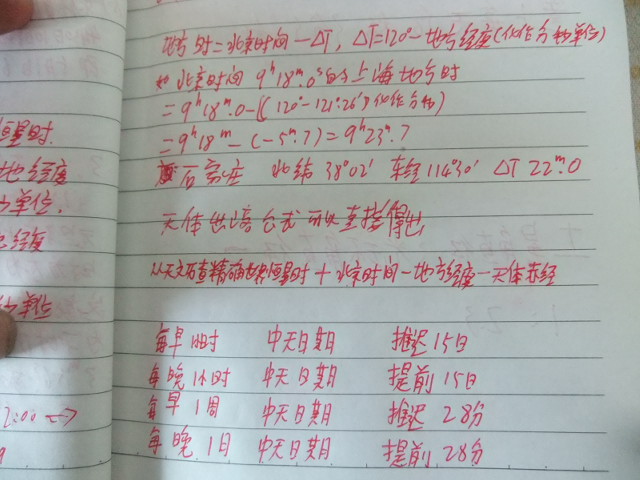 恒星时.
地经度
单位.
经度
单位
2:00
地方时=北京时间-ΔT, ΔT=120°-地方经度(化作分为单位)
如 北京时间 9ʰ18ᵐ.0ˢ的上海地方时
=9ʰ18ᵐ.0-[(120°-121°26′)化作分为]
=9ʰ18ᵐ-(-5ᵐ.7)=9ʰ23ᵐ.7
石家庄 北纬38°02′ 东经114°30′ ΔT 22ᵐ.0
天体 高 公式 可以直接得出
从天文 查精确世界恒星时+北京时间-地方经度-天体赤经
每早1小时 中天日期 推迟15日
每晚1小时 中天日期 提前15日
每早1周 中天日期 推迟28分
每晚1日 中天日期 提前28分